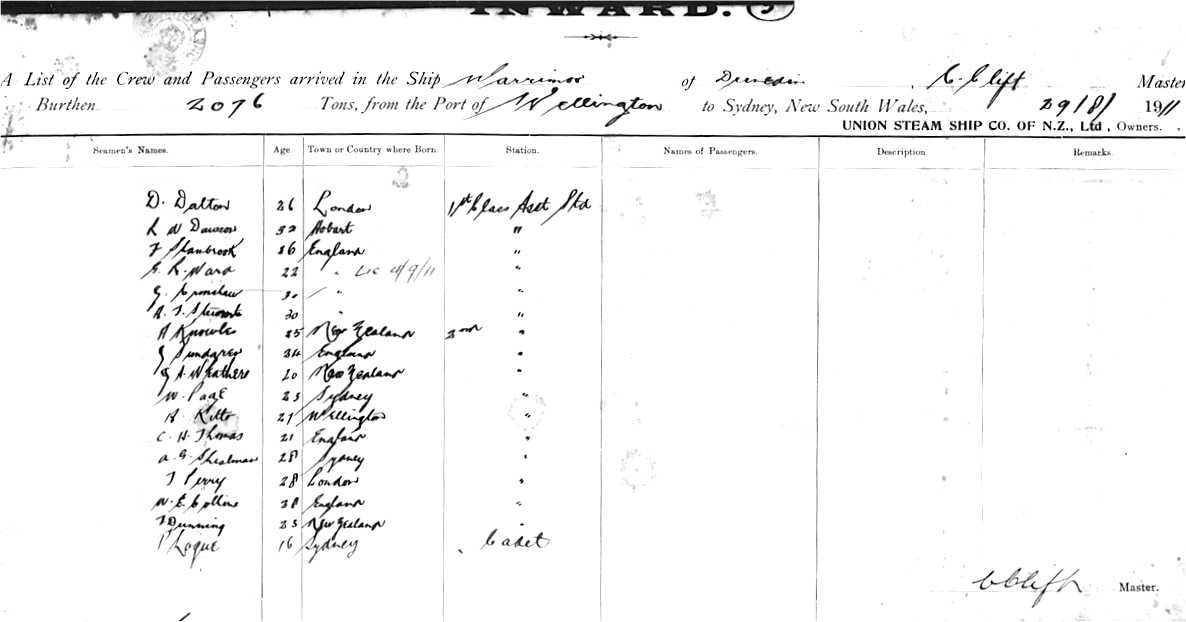 INWARD. 9
A List of the Crew and Passengers arrived in the Ship Warrimoo of Dunedin, C. Clift Master
Burthen 2076 Tons, from the Port of Wellington to Sydney, New South Wales, 29/8/1911
UNION STEAM SHIP CO. OF N.Z., Ltd, Owners.
Seamen's Names. Age. Town or Country where Born. Station. Names of Passengers. Description Remarks.
D. Dalton 26 London 1st Class Asst Std
R W Dawson 32 Hobart "
F Stanbrook 26 England "
G. R. Ward 22 " 4/9/11 "
G. Crmshaw 30 " "
A. J. 30 " "
A Knowle 25 New Zealand 2nd "
J Sundgren 34 England "
G A Weathers 20 New Zealand "
W. Page 23 Sydney "
A. Kitto 27 Wellington "
C. H. Thomas 21 England "
A. G. Shealman 28 Sydney "
T Perry 28 London "
W. E. Collins 38 England "
J Dunning 23 New Zealand "
P Logue 16 Sydney Cadet
C Clift Master.